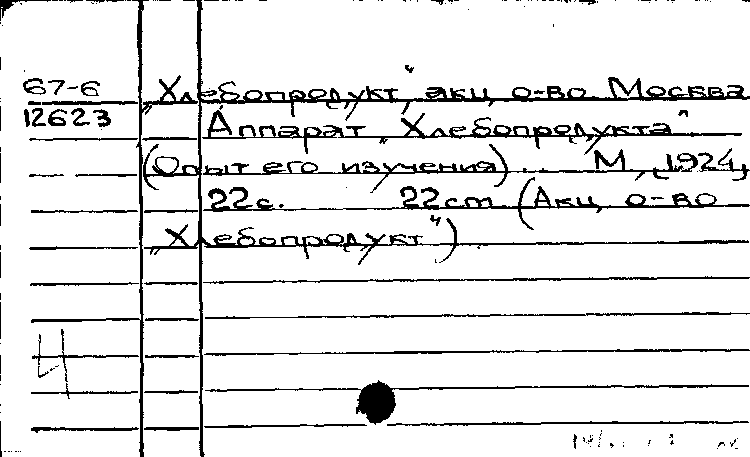 67-6 „Хлебопродукт“, акц. о-во. Москва
12623 Аппарат „Хлебопродукта“.
(Опыт его изучения). М., 1924,
22 с. 22 cm (Акц. о-во
„Хлебопродукт“).
Ч